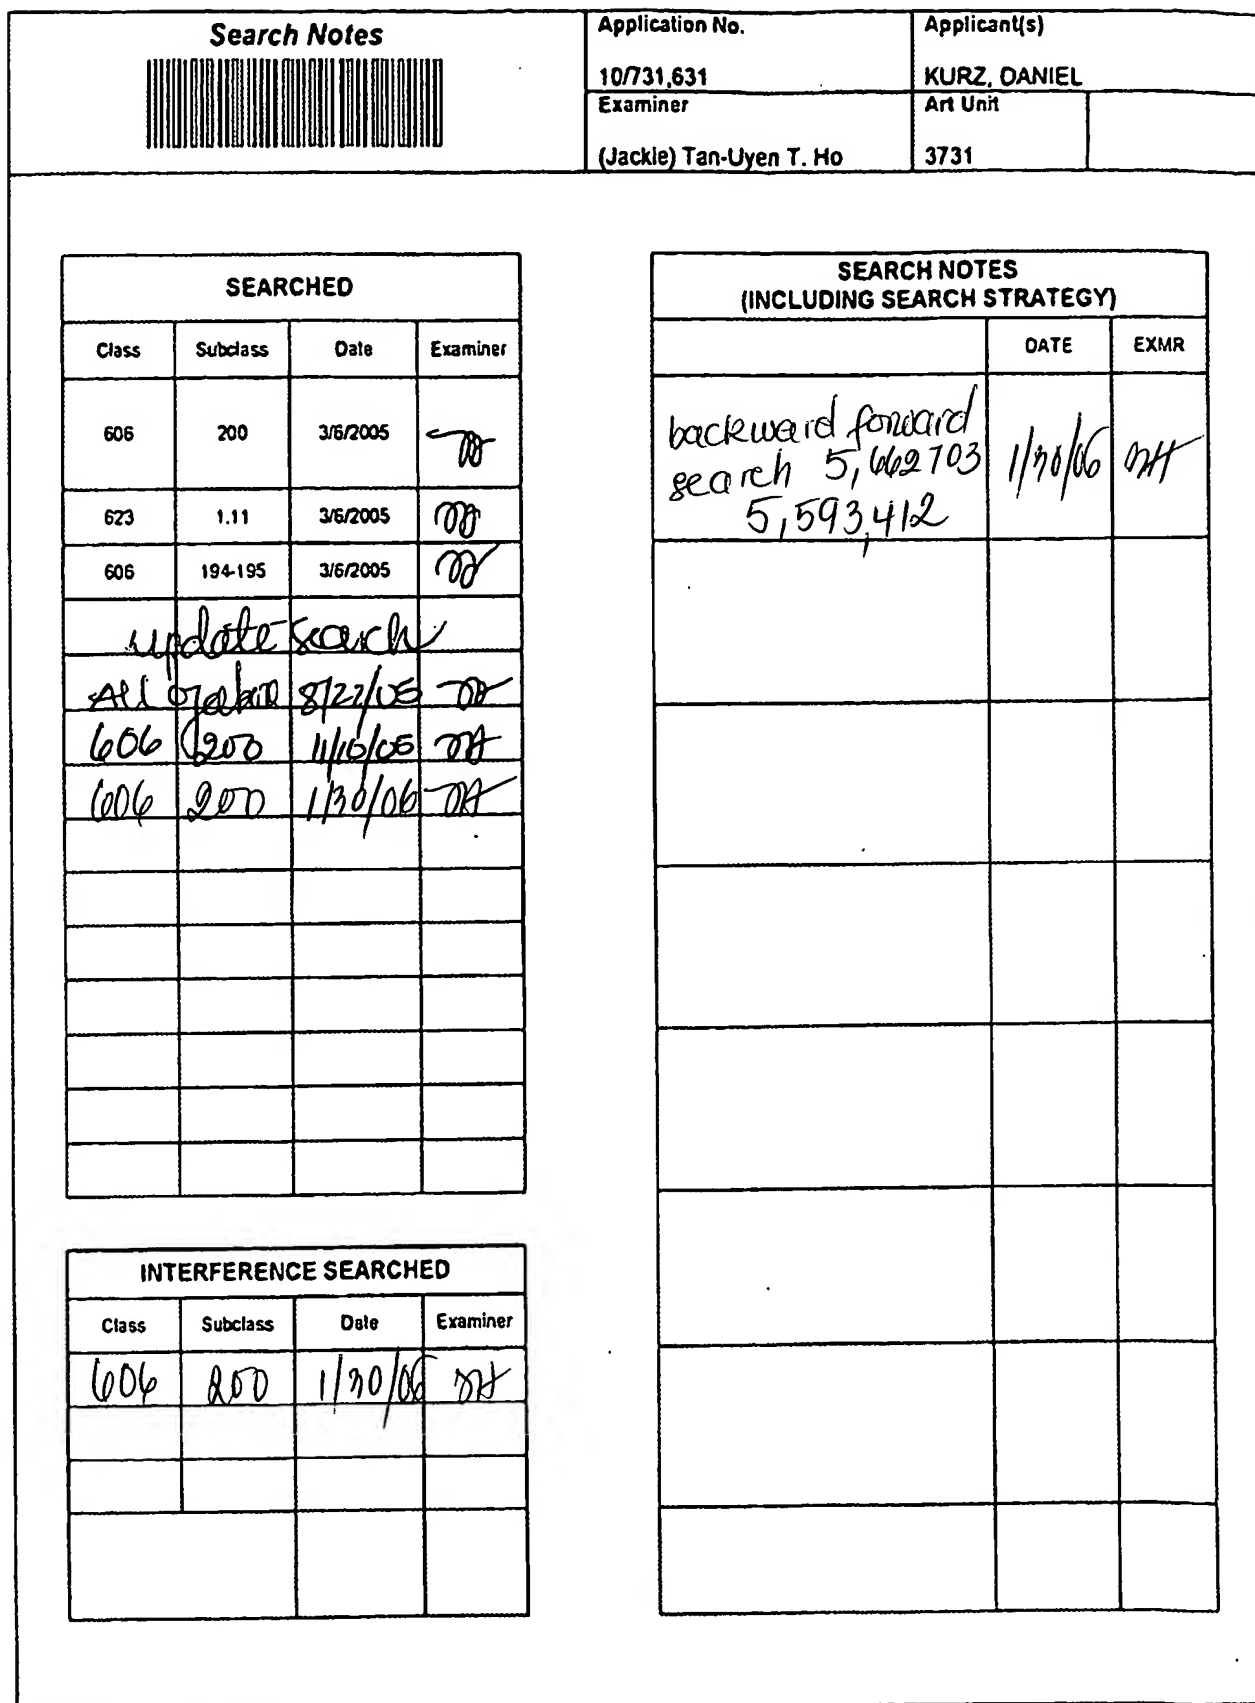 Search Notes
Application No.
10/731,631
Applicant(s)
KURZ, DANIEL
Examiner
(Jackie) Tan-Uyen T. Ho
Art Unit
3731
SEARCHED
Class Subclass Date Examiner
606 200 3/6/2005
623 1.11 3/6/2005
606 194-195 3/6/2005
update search
All 8/22/05
606 200 11/10/05
606 200 1/30/06
INTERFERENCE SEARCHED
Class Subclass Date Examiner
606 200 1/30/06
SEARCH NOTES
(INCLUDING SEARCH STRATEGY)
DATE EXMR
backward forward
search 5,662703 1/30/06
5,593,412